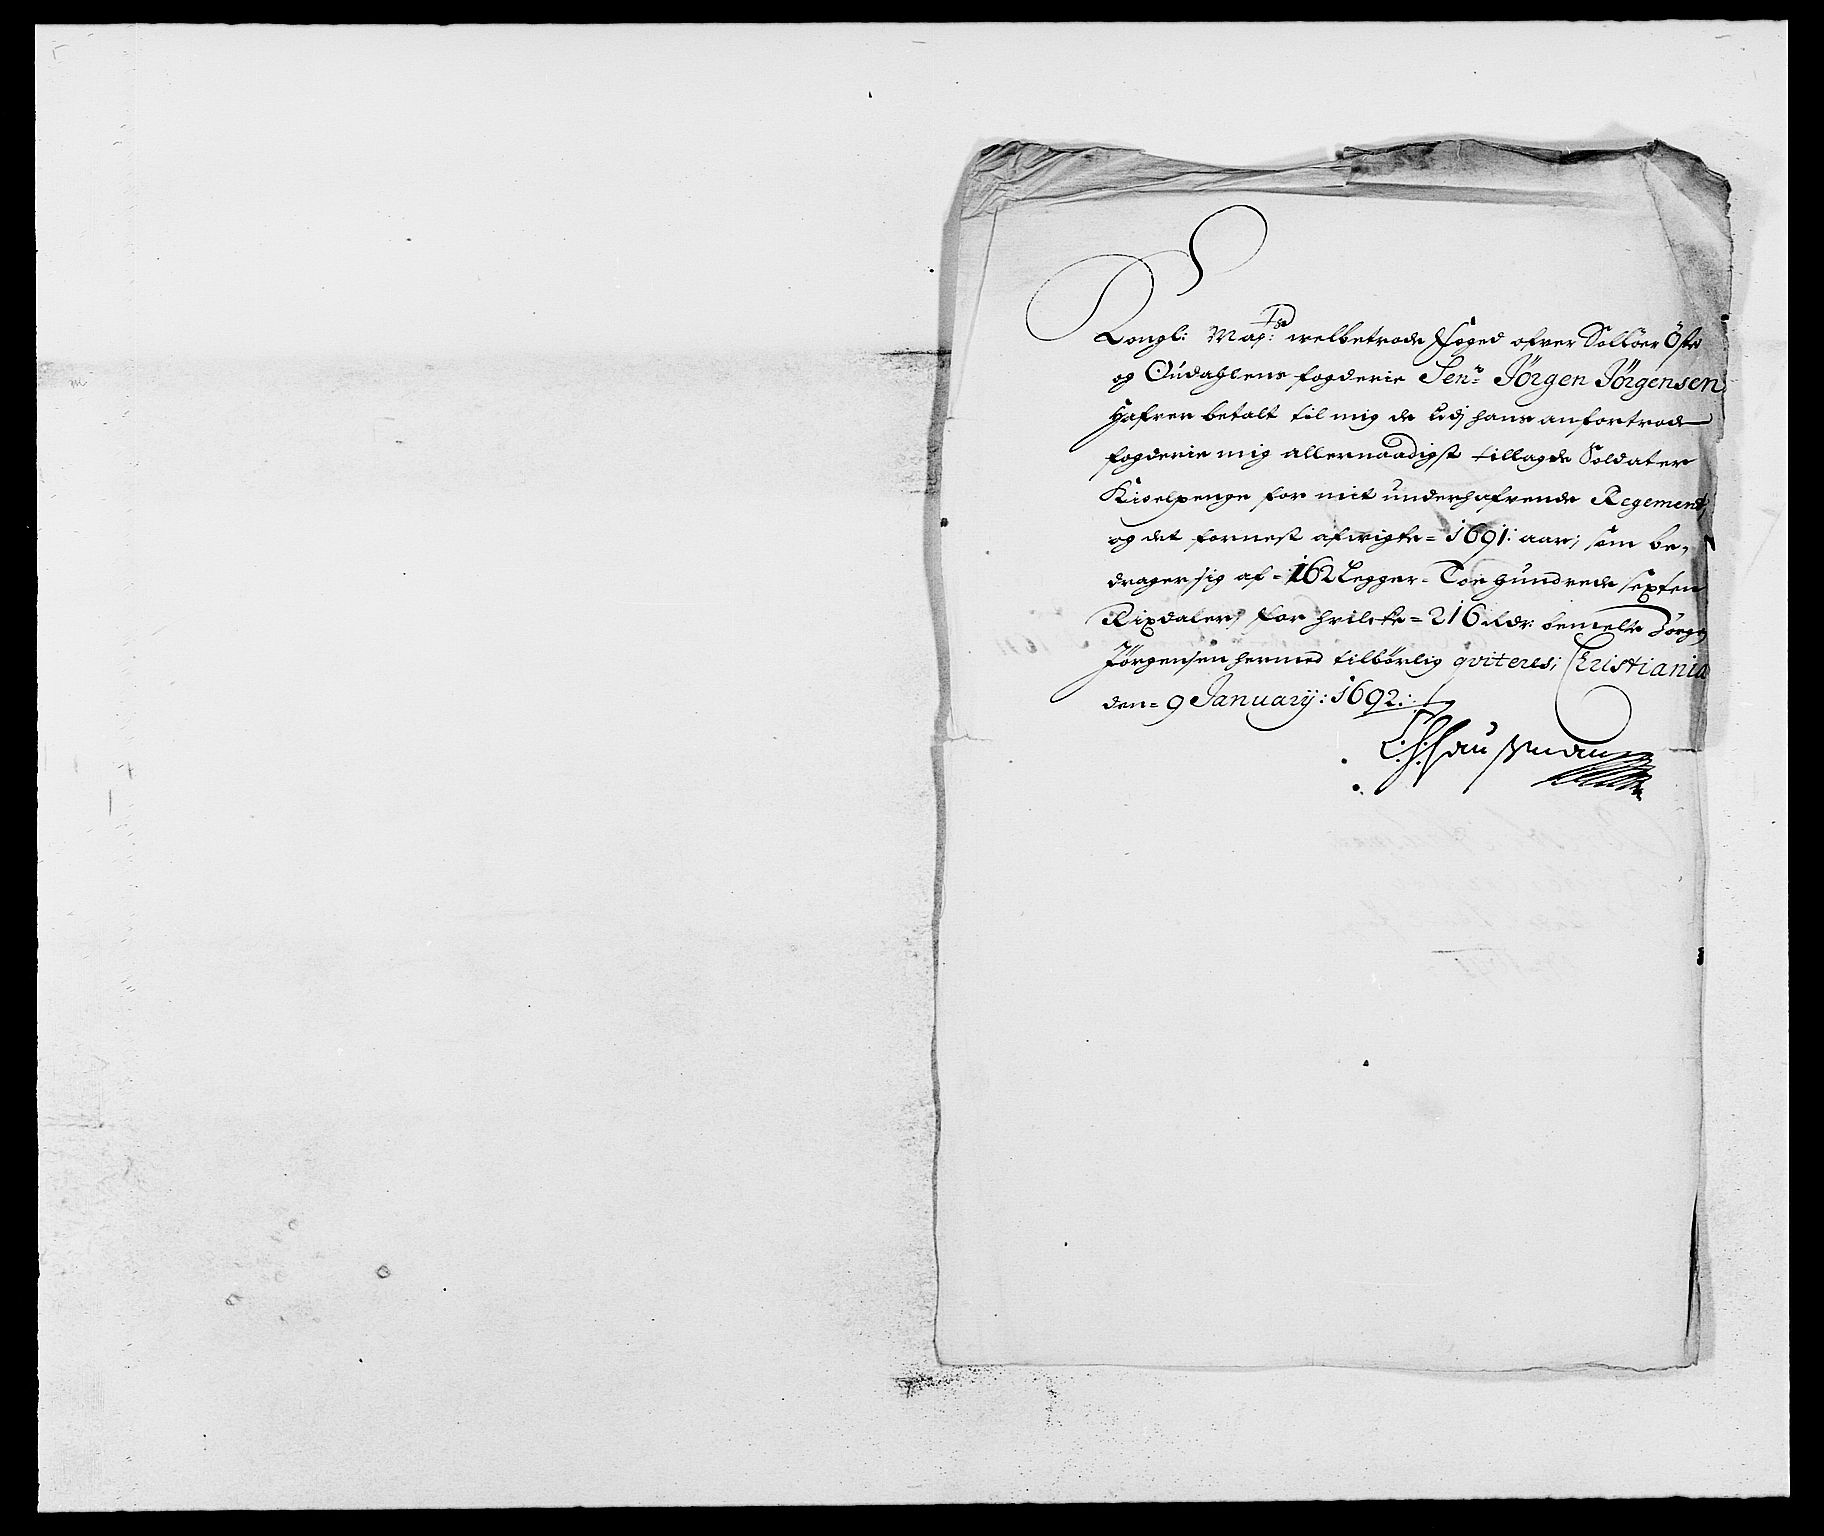 Kongl: Maj:ts welbetrode Foged ofver Solöer Öster
og Oudahlens fogderie Senr Jörgen Jörgensen
Hafver betalt til mig de udj hans anfortrode
fogderie mig allernaadigst tillagde Soldater
Kiolpenge for mit underhafvende Regement,
og det fornest afvigte = 1691: aar; som be,
drager sig af = 162 Legger = Toe hundrede sexten
Rixdaler; for hvilcke = 216 Rdr: bemelte Jörgen
Jörgensen hermed tilbörlig qviteres; Christiania
den = 9 January: 1692:
C:H:Hausman